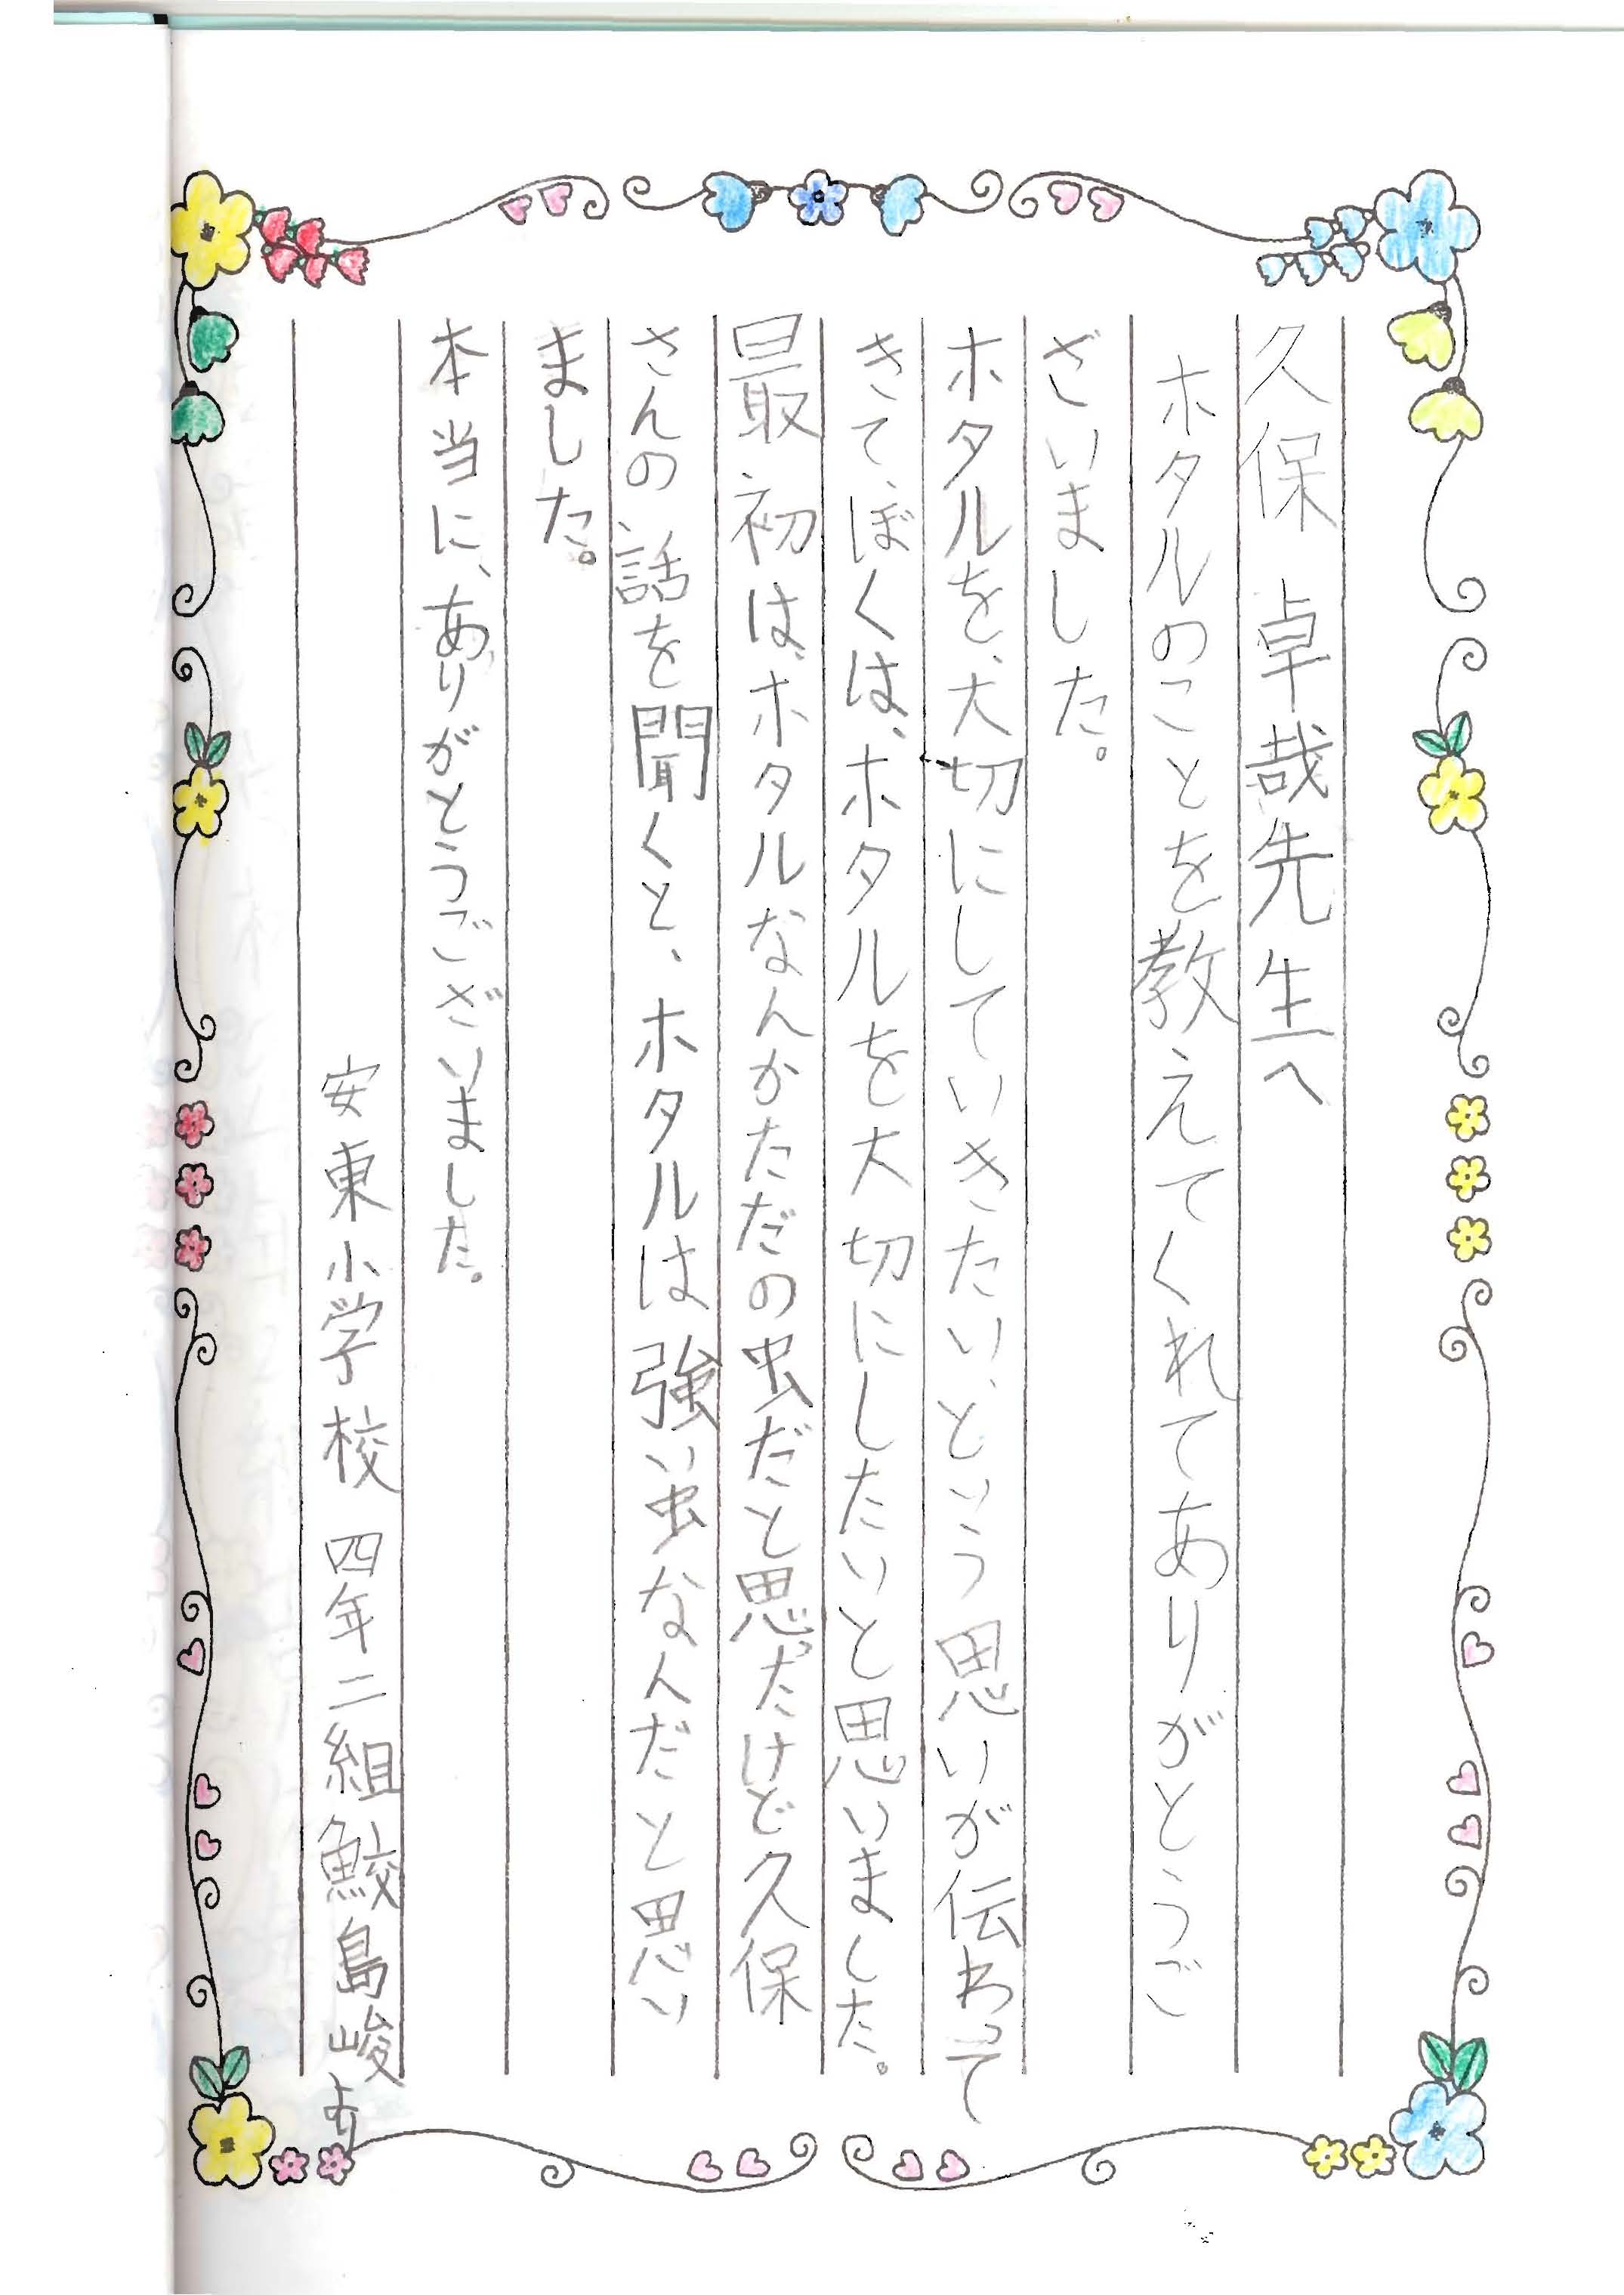 久保 卓哉先生へ
ホタルのことを教えてくれてありがとうご
ざいました。
ホタルを、大切にしていきたい、という思いが伝わって
きて、ぼくは、ホタルを大切にしたいと思いました。
最初は、ホタルなんかただの虫だと思ったけど久保
さんの話を聞くと、ホタルは強い虫なんだと思い
ました。
本当に、ありがとうございました。
安東小学校 四年二組鮫島峻より